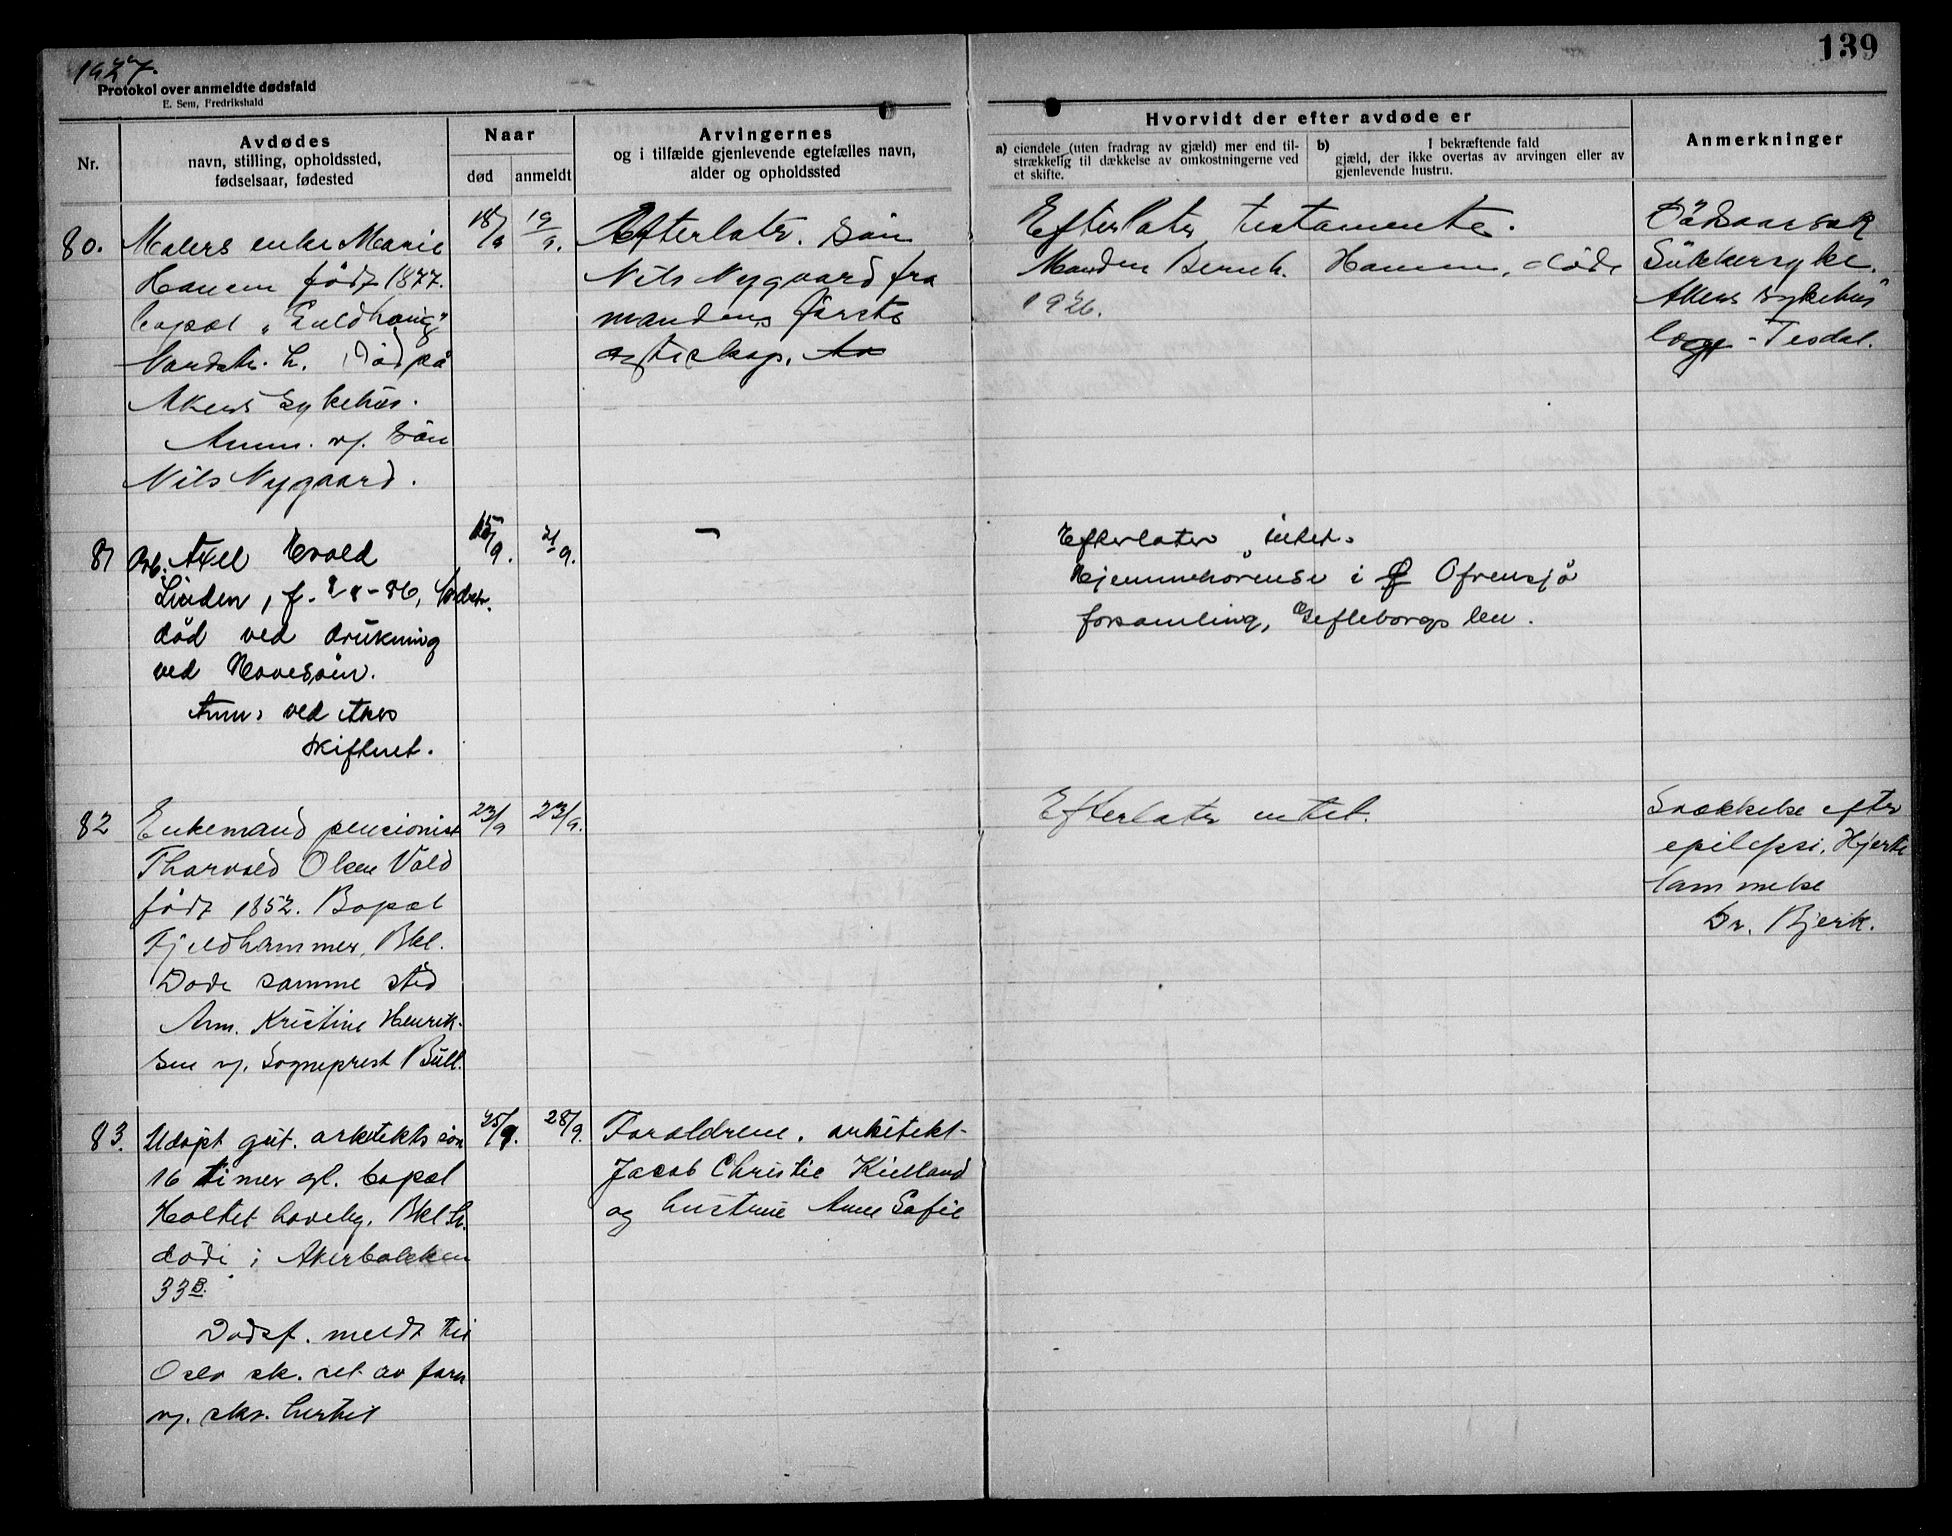 1927.
139
Protokol over anmeldte dødsfald
E. Sem, Fredrikshald
Nr.
Avdødes
navn, stilling, opholdssted,
fødselsaar, fødested
Naar
død
anmeldt
Arvingernes
og i tilfælde gjenlevende egtefælles navn,
alder og opholdssted
Hvorvidt der efter avdøde er
a) eiendele (uten fradrag av gjæld) mer end til-
strækkelig til dækkelse av omkostningerne ved
et skifte.
b) I bekræftende fald
gjæld, der ikke overtas av arvingen eller av
gjenlevende hustru.
Anmerkninger
80.
Malers enke Marie
Hansen født 1877.
bopæl
Nordstr. h. Død på
Akers Sykehus.
Anm. v/. Søn
Nils Nygaard.
18/9
19/9.
Efterlater. Søn
Nils Nygaard fra
mandens første
egteskap.
Efterlater testamente.
Manden Bernh. Hansen, døde
1926.
Dødsaarsak
Sukkersyke.
Akers sykehus
læge - Tesdal.
81
Arb. Axel Evald
Linden, f. - 86,
død ved drukning
ved Hovesøen.
Anm. ved Akers
skifteret.
15/9.
21/9.
-
Efterlater intet.
Hjemmehørende i Ofvensjø
forsamling, Gefleborgs len.
82
Enkemand pensionist
Thorvald Olsen Vold
født 1852. Bopæl
Fjeldhammer, Bkl.
Døde samme sted
Anm. Kristine Henrik-
sen v/. Sogneprest Bull.
23/9
23/9.
Efterlater intet.
Svækkelse efter
epilepsi, Hjerte
lammelse
Dr. Bjerk.
83.
Udøpt gut. arkitekts søn
16 timer gl. bopæl
Holtet haveby, Bkl.h.
døde i Akerbakken
33 B.
Dødsf. meldt til
Oslo sk. ret av faren
v/. skr. hertil
25/9.
28/9.
Forældrene. arkitekt
Jacob Christie Kielland
og hustrue Anne Sofie